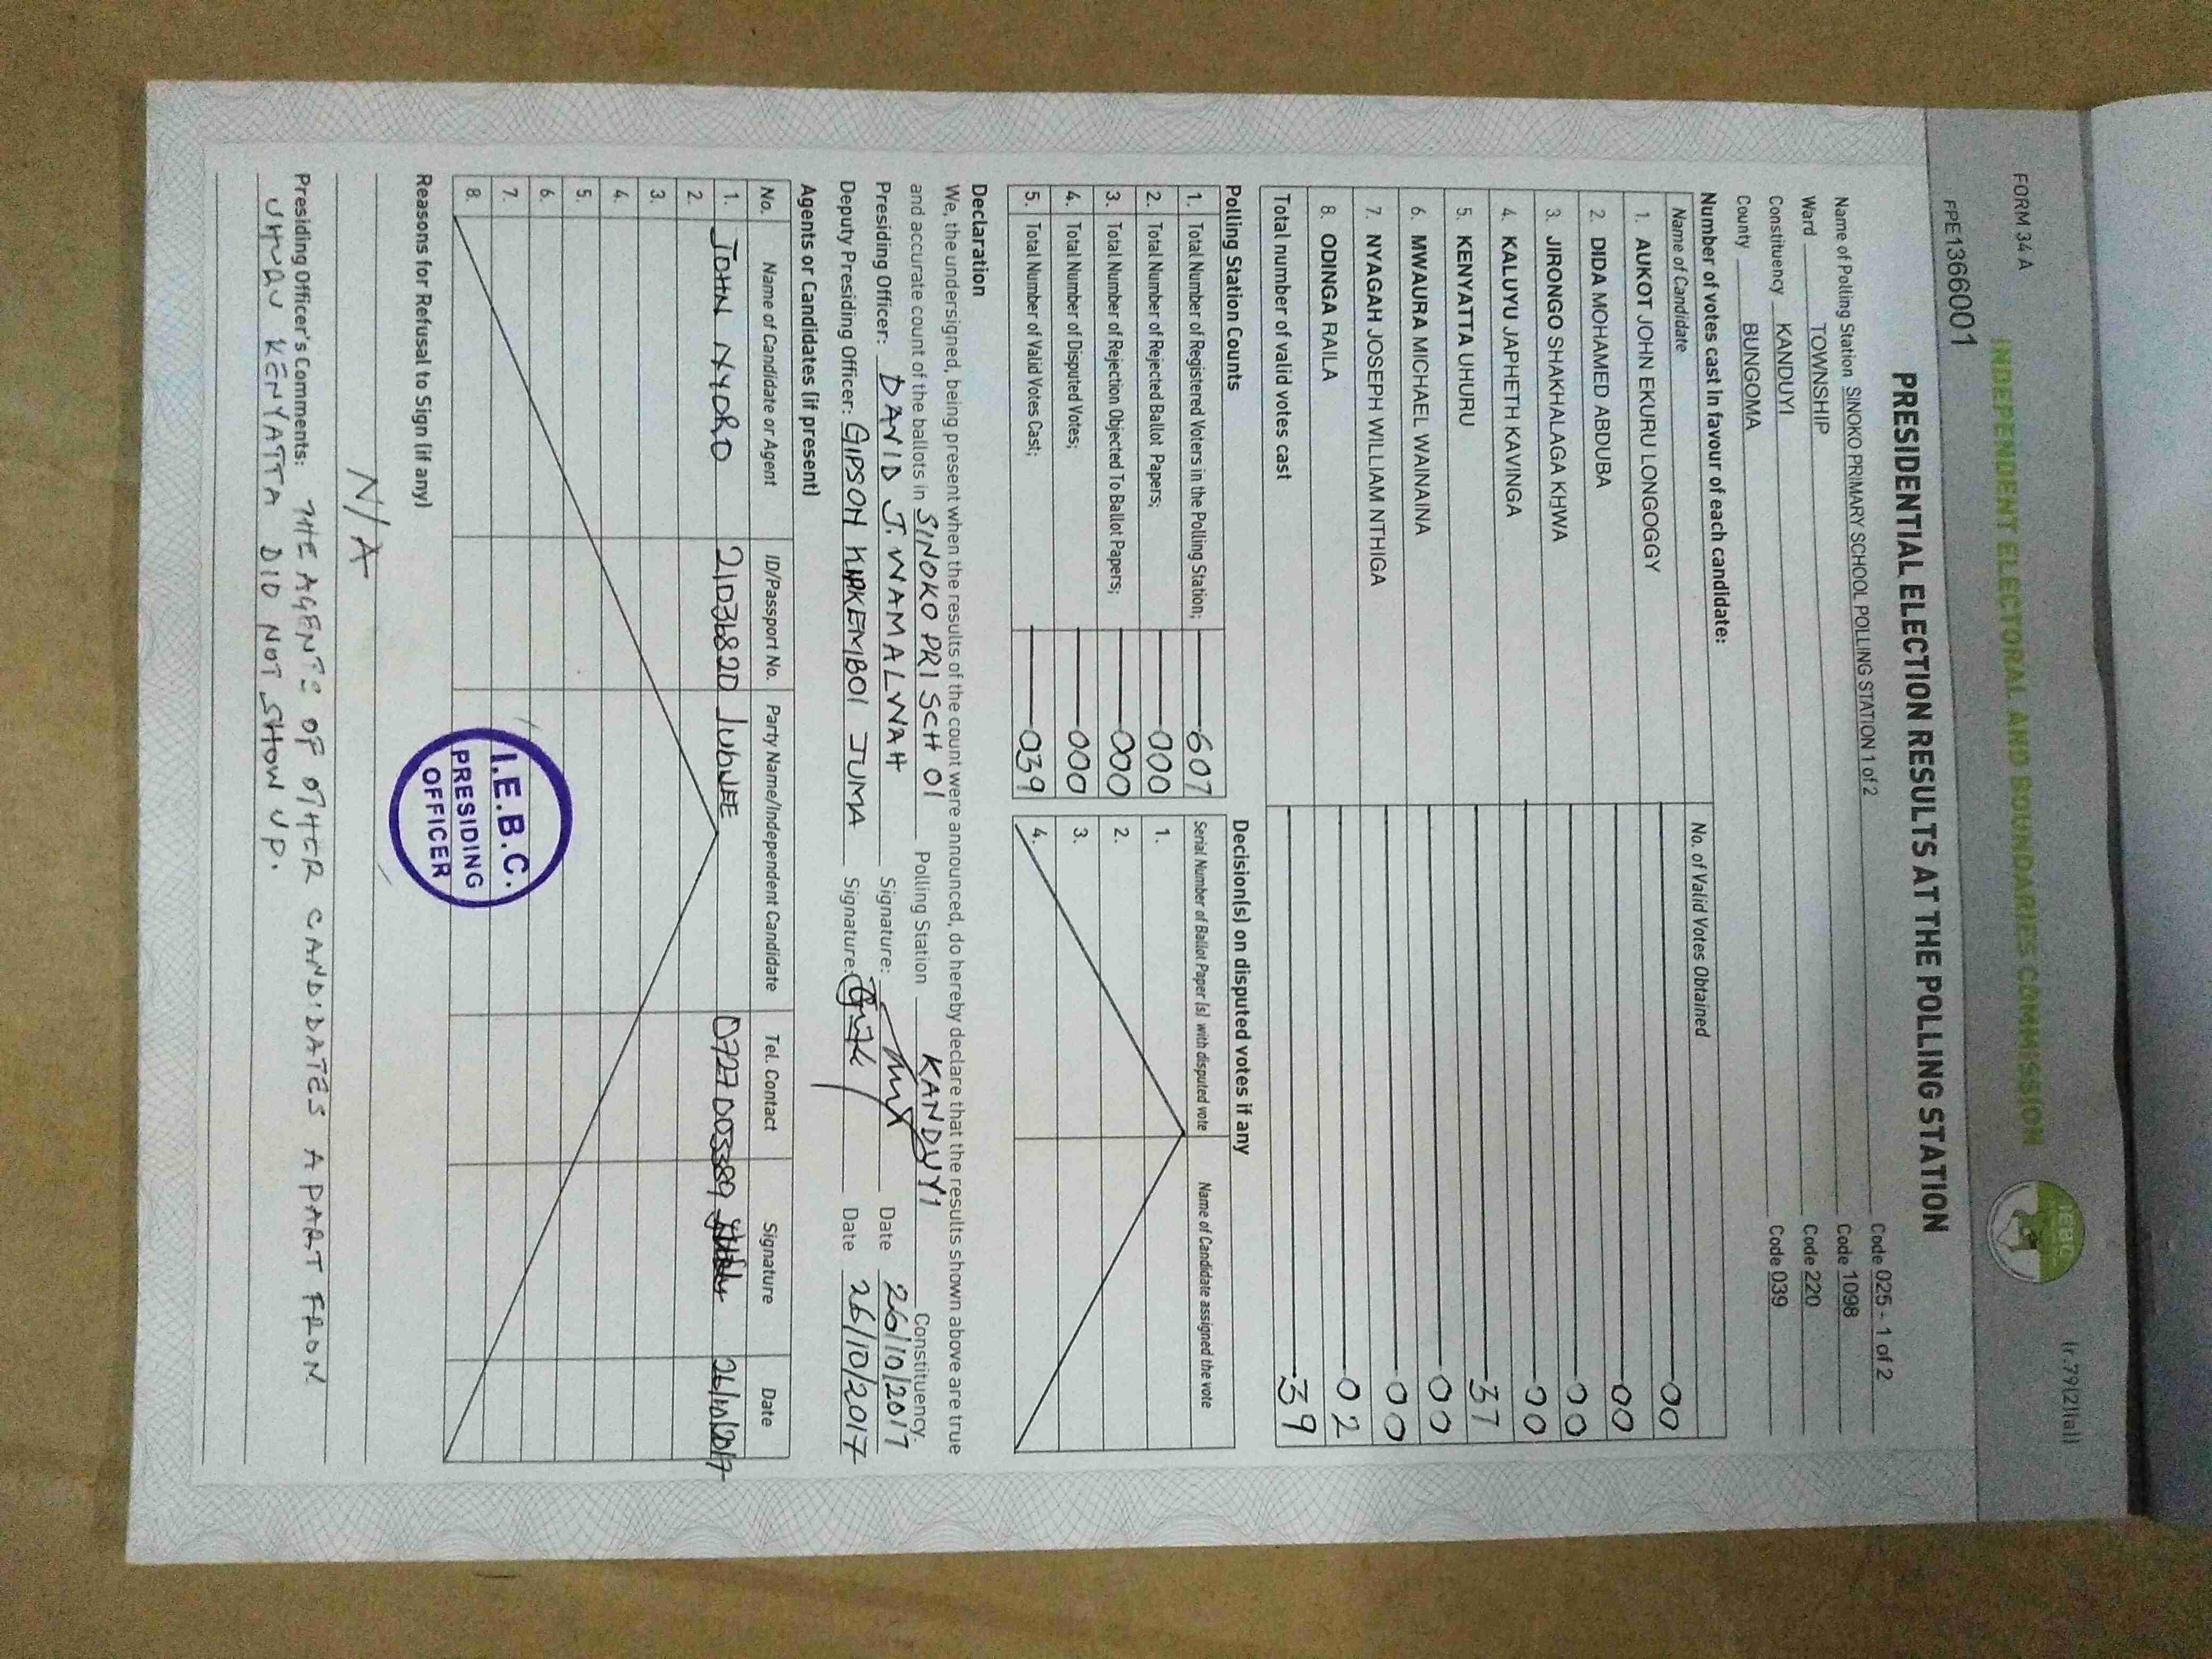 FORM 34 A
(r.79(2)(a))
INDEPENDENT ELECTORAL AND BOUNDARIES COMMISSION
iebc
FPE1366001
PRESIDENTIAL ELECTION RESULTS AT THE POLLING STATION
Name of Polling Station SINOKO PRIMARY SCHOOL POLLING STATION 1 of 2 Code 025 - 1 of 2
Ward TOWNSHIP Code 1098
Constituency KANDUYI Code 220
County BUNGOMA Code 039
Number of votes cast in favour of each candidate:
Name of Candidate No. of Valid Votes Obtained
1. AUKOT JOHN EKURU LONGOGGY 00
2. DIDA MOHAMED ABDUBA 00
3. JIRONGO SHAKHALAGA KHWA 00
4. KALUYU JAPHETH KAVINGA 00
5. KENYATTA UHURU 37
6. MWAURA MICHAEL WAINAINA 00
7. NYAGAH JOSEPH WILLIAM NTHIGA 00
8. ODINGA RAILA 02
Total number of valid votes cast 39
Polling Station Counts
1. Total Number of Registered Voters in the Polling Station; 607
2. Total Number of Rejected Ballot Papers; 000
3. Total Number of Rejection Objected To Ballot Papers; 000
4. Total Number of Disputed Votes; 000
5. Total Number of Valid Votes Cast; 039
Decision(s) on disputed votes if any
Serial Number of Ballot Paper (s) with disputed vote Name of Candidate assigned the vote
1.
2.
3.
4.
Declaration
We, the undersigned, being present when the results of the count were announced, do hereby declare that the results shown above are true
and accurate count of the ballots in SINOKO PRI SCH 01 Polling Station KANDUYI Constituency.
Presiding Officer: DAVID J. WAMALWAH Signature: Date 26/10/2017
Deputy Presiding Officer: GIPSON KIPKEMBOI JUMA Signature: Date 26/10/2017
Agents or Candidates (if present)
No. Name of Candidate or Agent ID/Passport No. Party Name/Independent Candidate Tel. Contact Signature Date
1. JOHN NYORO 21036820 JUBILEE 0727003389 26/10/2017
2.
3.
4.
5.
6.
7.
8.
Reasons for Refusal to Sign (if any)
N/A
I.E.B.C.
PRESIDING
OFFICER
Presiding Officer's Comments: THE AGENTS OF OTHER CANDIDATES APART FRON
UHURU KENYATTA DID NOT SHOW UP.